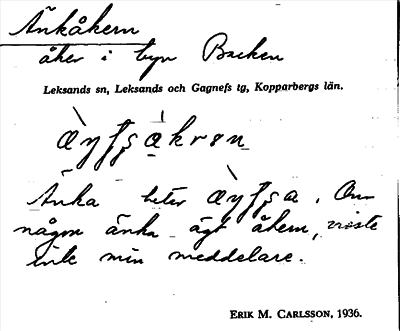 Änkåkern
åker i byn Backen
Leksands sn, Leksands och Gagnefs tg, Kopparbergs län.
Änka heter . Om
någon änka ägt åkern, visste
inte min meddelare.
ERIK M. CARLSSON, 1936.